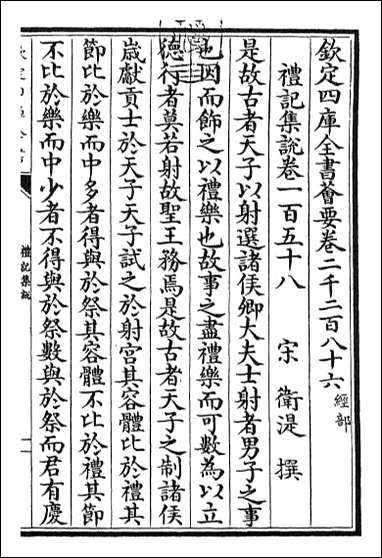 欽定四庫全書薈要卷二千二百八十六 經部
禮記集說卷一百五十八
宋 衛湜 撰
是故古者天子以射選諸侯卿大夫士射者男子之事
也因而飾之以禮樂也故事之盡禮樂而可數為以立
德行者莫若射故聖王務焉是故古者天子之制諸侯
歲獻貢士於天子天子試之於射宮其容體比於禮其
節比於樂而中多者得與於祭其容體不比於禮其節
不比於樂而中少者不得與於祭數與於祭而君有慶
禮記集說
一